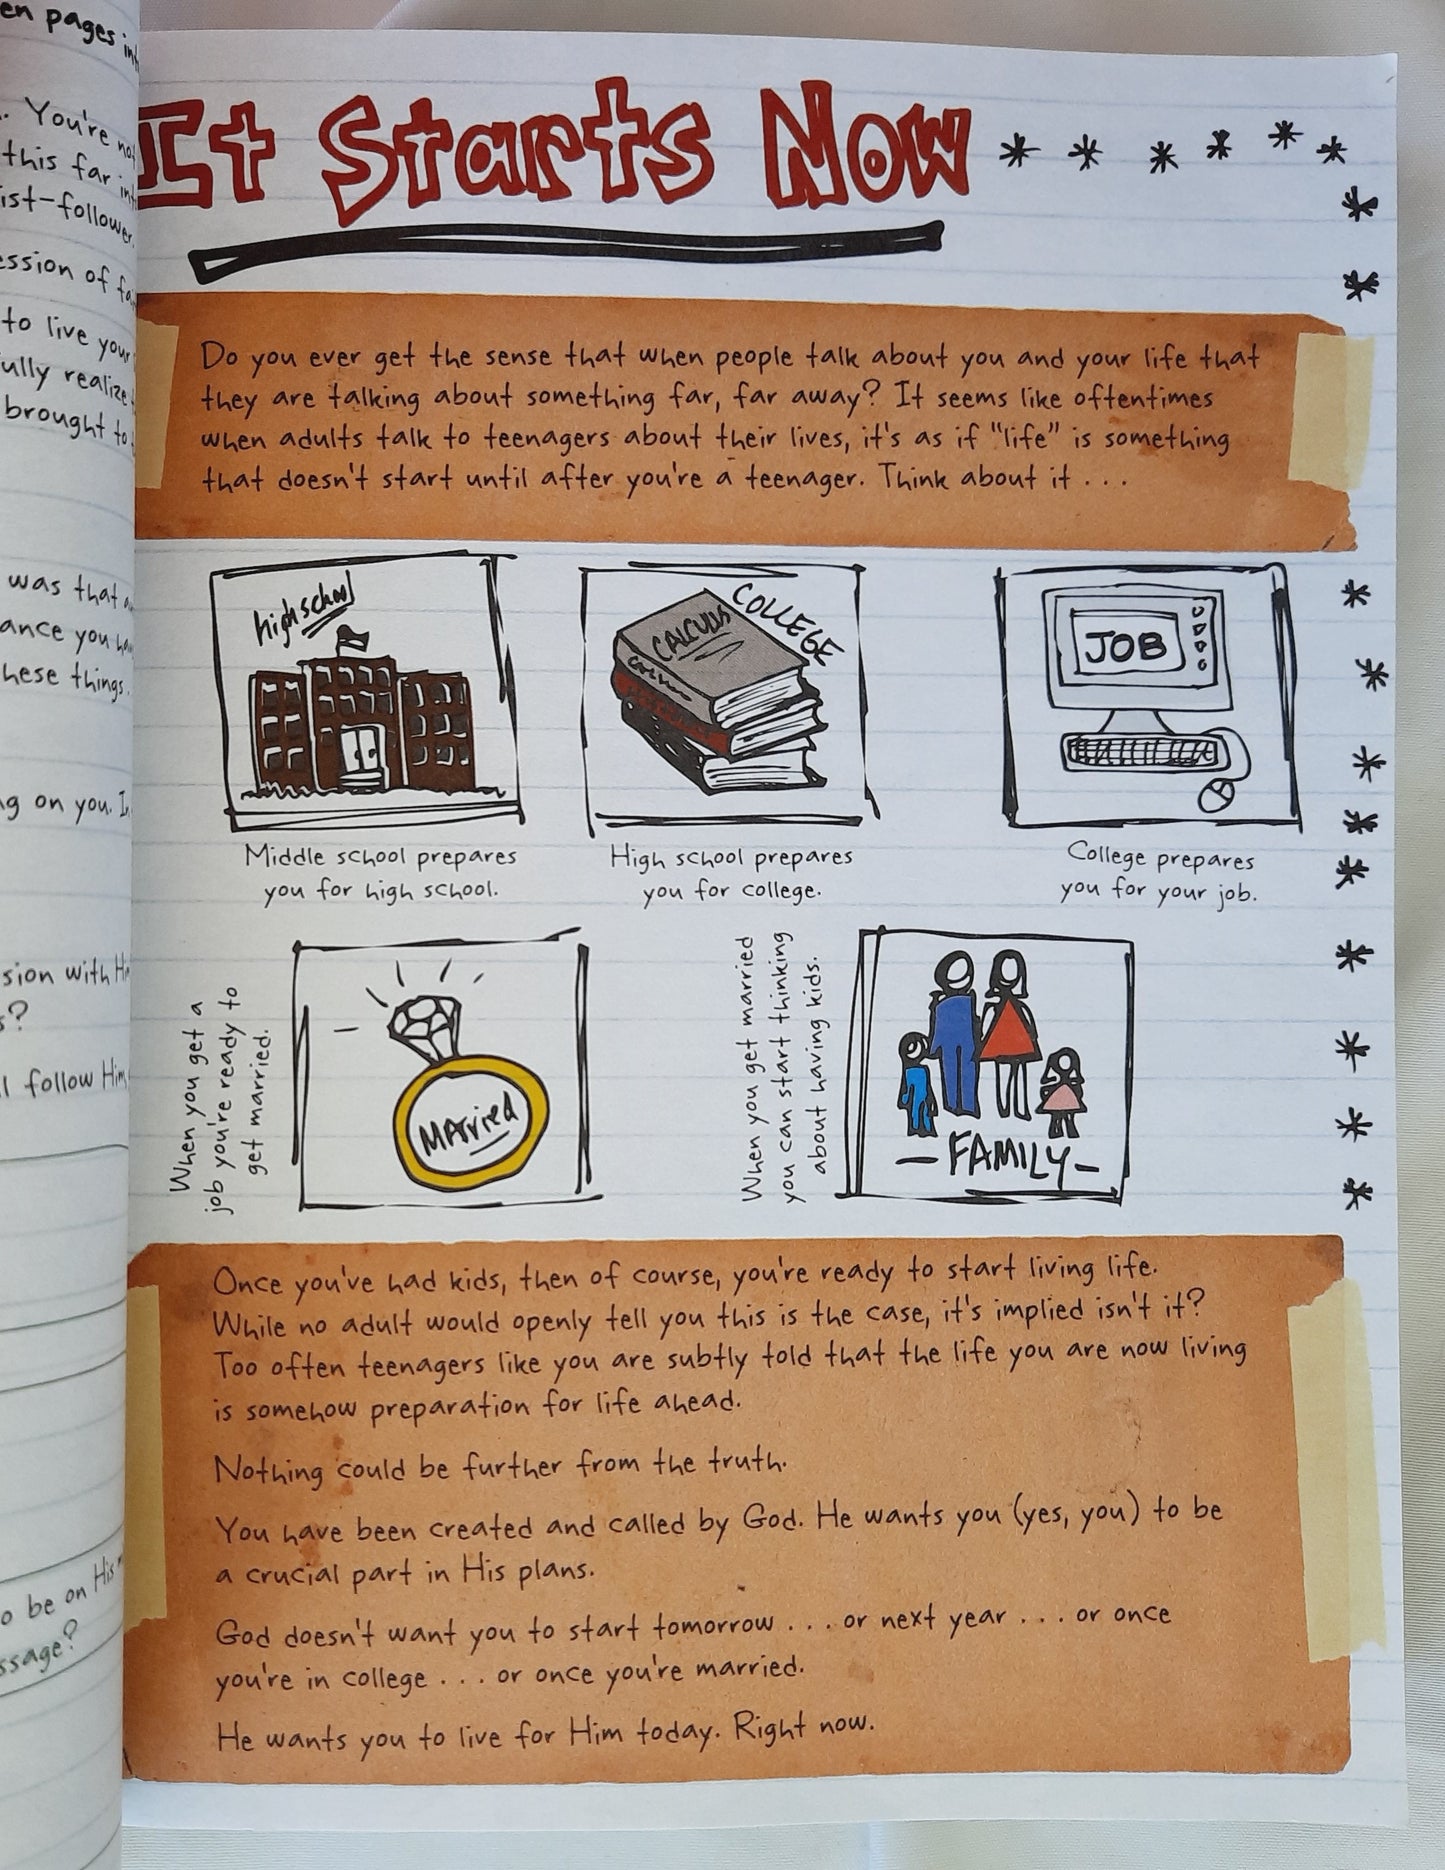 en pages int
. You're not
this far int
ist-follower.
ession of fa
to live your
ully realize
brought to
was that a
ance you ha
hese things.
ng on you. In
sion with Hi
s?
l follow Him
o be on His
ssage?
It Starts Now
Do you ever get the sense that when people talk about you and your life that
they are talking about something far, far away? It seems like oftentimes
when adults talk to teenagers about their lives, it's as if "life" is something
that doesn't start until after you're a teenager. Think about it . . .
high school
Middle school prepares
you for high school.
COLLEGE
CALCULUS
High school prepares
you for college.
JOB
College prepares
you for your job.
When you get a
job you're ready to
get married.
MArried
When you get married
you can start thinking
about having kids.
-FAMILY-
Once you've had kids, then of course, you're ready to start living life.
While no adult would openly tell you this is the case, it's implied isn't it?
Too often teenagers like you are subtly told that the life you are now living
is somehow preparation for life ahead.
Nothing could be further from the truth.
You have been created and called by God. He wants you (yes, you) to be
a crucial part in His plans.
God doesn't want you to start tomorrow . . . or next year . . . or once
you're in college . . . or once you're married.
He wants you to live for Him today. Right now.